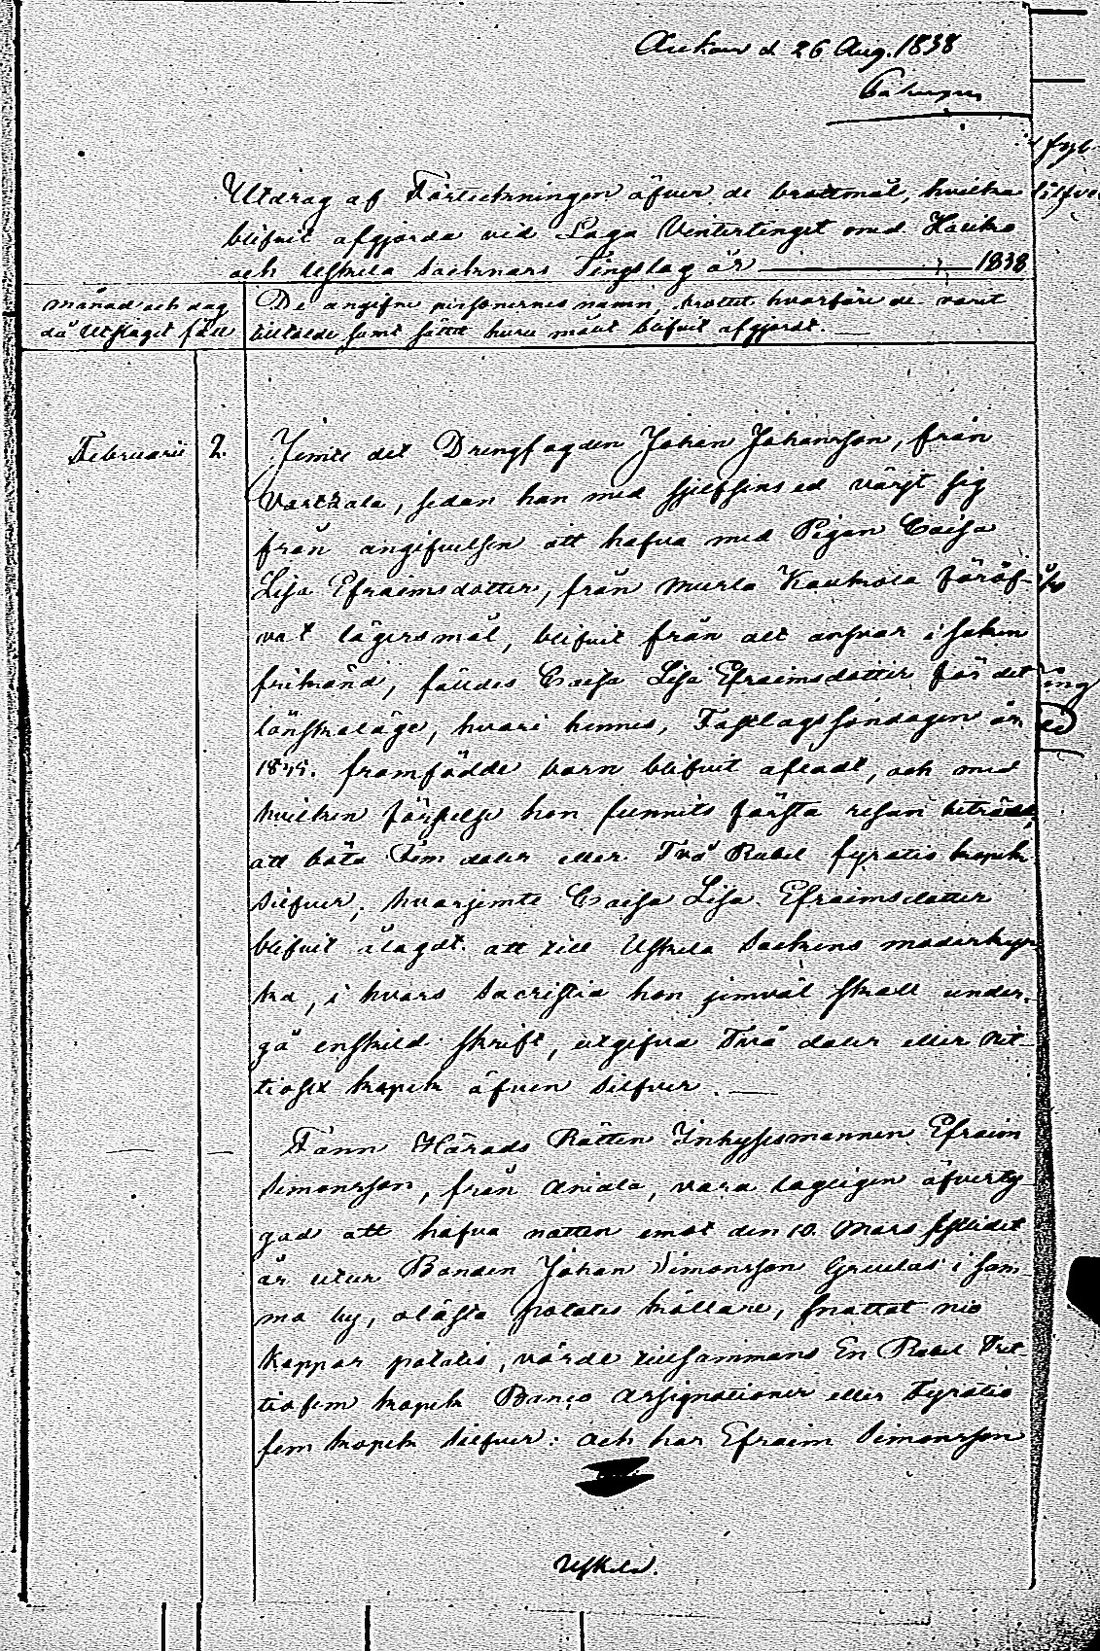 d 26 Aug. 1838
Utdrag af Förteckningen öfver de brottmål, hvilka
blifvit afgjorda vid Laga Vintertinget med Hauho
och Uskela Socknars Tingslag år 1838
månad och dag
då Utslaget fäll
De angifne personernes namn, brottet hvarföre de varit
tilltalde samt sättet huru målet blifvit afgjordt.
Februarii 2.
Jemte det Drengfogden Johan Johansson, från
Vartsala, sedan han med sjelfsins ed värjt sig
från angifvelsen att hafva med Pigan Caisa
Lisa Efraimsdotter, från Murla Kaukola föröf-
vat lägersmål, blifvit från allt ansvar i saken
frikänd, fälldes Caisa Lisa Efraimsdotter för det
lönskaläge, hvari hennes, Fastlagssöndagen år
framfödde barn blifvit afladt, och med
hvilken förseelse hon funnits första resan beträdd,
att böta Fem daler eller Två Rubel fyratio kopek
silfver; hvarjemte Caisa Lisa Efraimsdotter
blifvit ålagdt att till Uskela Sockens moderkyr-
ka, i hvars Sacristia hon jemväl skall under-
gå enskild skrift, utgifva Två daler eller nit-
tiosex kopek äfven silfver.
Fann Härads Rätten Inhysesmannen Efraim
Simonsson, från Aniala, vara lagligen öfverty-
gad att hafva natten emot den 10 Mars sistlidet
år utur Bonden Johan Simonsson i sam-
ma by, olåsta potates källare, snattat nio
Kappar potates, värde tillsammans En Rubel Fret-
tiofem kopek Banco Assignationer eller Fyratio
fem kopek silfver: och har Efraim Simonsson
Uskela.